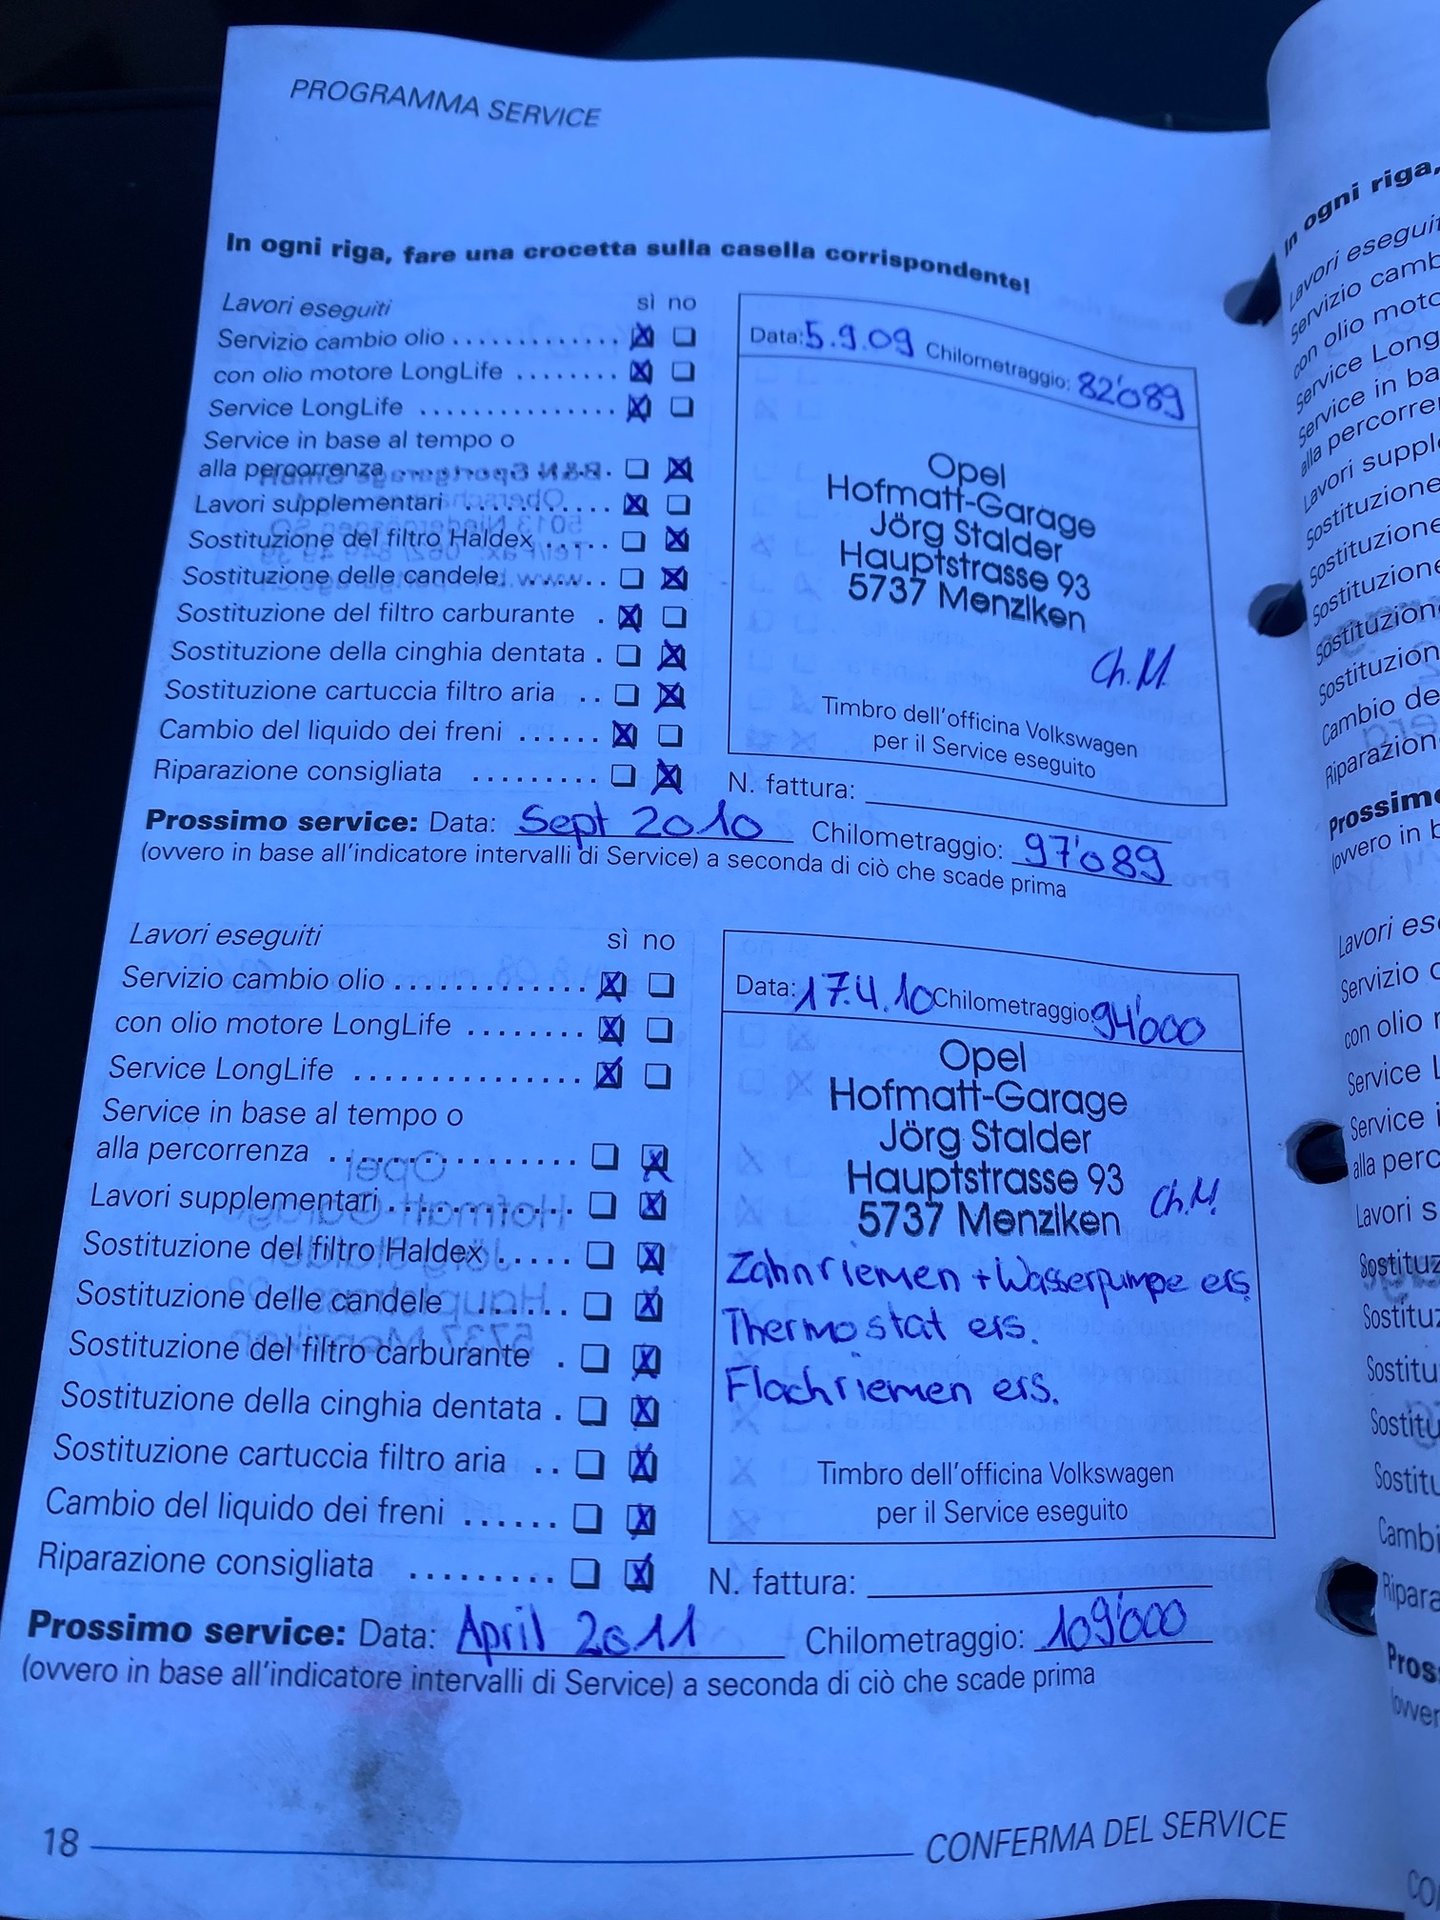 PROGRAMMA SERVICE
In ogni riga, fare una crocetta sulla casella corrispondente!
Lavori eseguiti sì no
Servizio cambio olio
con olio motore LongLife
Service LongLife
Service in base al tempo o
alla percorrenza
Lavori supplementari
Sostituzione del filtro Haldex
Sostituzione delle candele
Sostituzione del filtro carburante
Sostituzione della cinghia dentata
Sostituzione cartuccia filtro aria
Cambio del liquido dei freni
Riparazione consigliata
Data: 5.9.09 Chilometraggio: 82'089
Opel
Hofmatt-Garage
Jörg Stalder
Hauptstrasse 93
5737 Menziken
Ch.M.
Timbro dell'officina Volkswagen
per il Service eseguito
N. fattura:
Prossimo service: Data: Sept 2010 Chilometraggio: 97'089
(ovvero in base all'indicatore intervalli di Service) a seconda di ciò che scade prima
Lavori eseguiti sì no
Servizio cambio olio
con olio motore LongLife
Service LongLife
Service in base al tempo o
alla percorrenza
Lavori supplementari
Sostituzione del filtro Haldex
Sostituzione delle candele
Sostituzione del filtro carburante
Sostituzione della cinghia dentata
Sostituzione cartuccia filtro aria
Cambio del liquido dei freni
Riparazione consigliata
Data: 17.4.10 Chilometraggio 94'000
Opel
Hofmatt-Garage
Jörg Stalder
Hauptstrasse 93
5737 Menziken
Ch.M.
Zahnriemen + Wasserpumpe ers.
Thermostat ers.
Flachriemen ers.
Timbro dell'officina Volkswagen
per il Service eseguito
N. fattura:
Prossimo service: Data: April 2011 Chilometraggio: 109'000
(ovvero in base all'indicatore intervalli di Service) a seconda di ciò che scade prima
18 CONFERMA DEL SERVICE
In ogni riga,